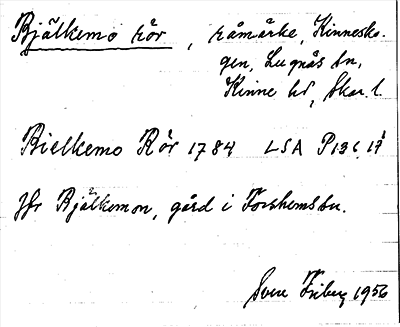 Bjälkemo rör, råmärke, Kinnesko-
gen, Lugnås sn,
Kinne hd, Skar. l.
Bielkemo Rör 1784 LSA P136.17¹
Jfr Bjälkemon, gård i Forshems sn.
Sven Friberg 1956